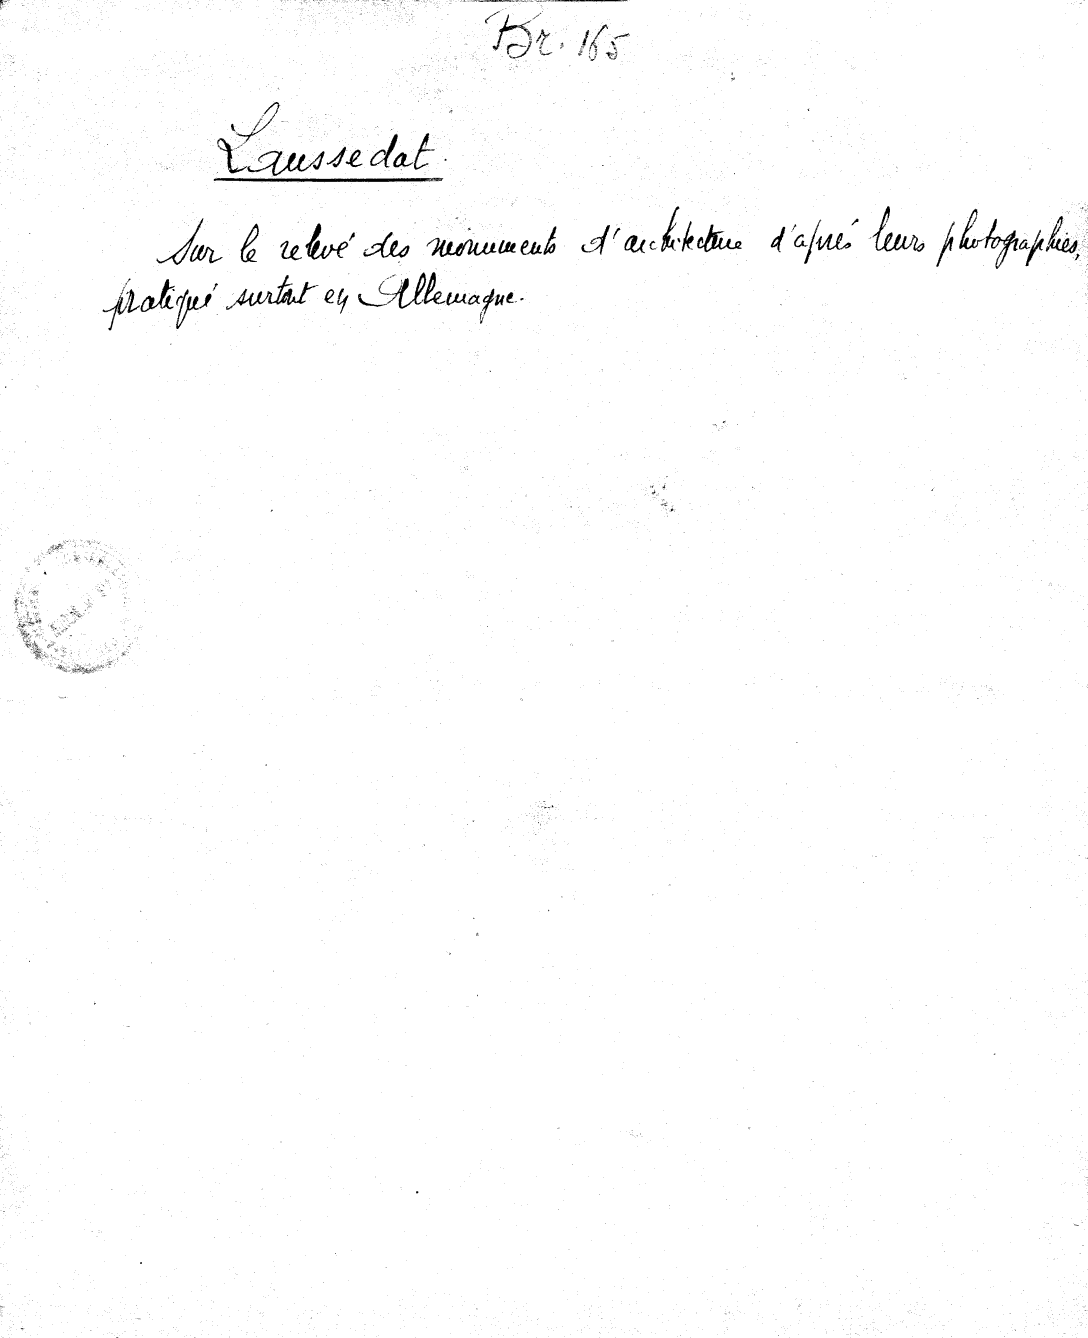 Br. 165
Laussedat.
Sur le relevé des monuments d'architecture d'après leurs photographies,
pratiqué surtout en Allemagne.